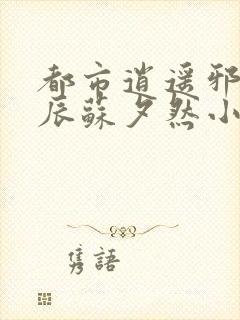 都市逍遥邪
辰蘇夕然小
隽語